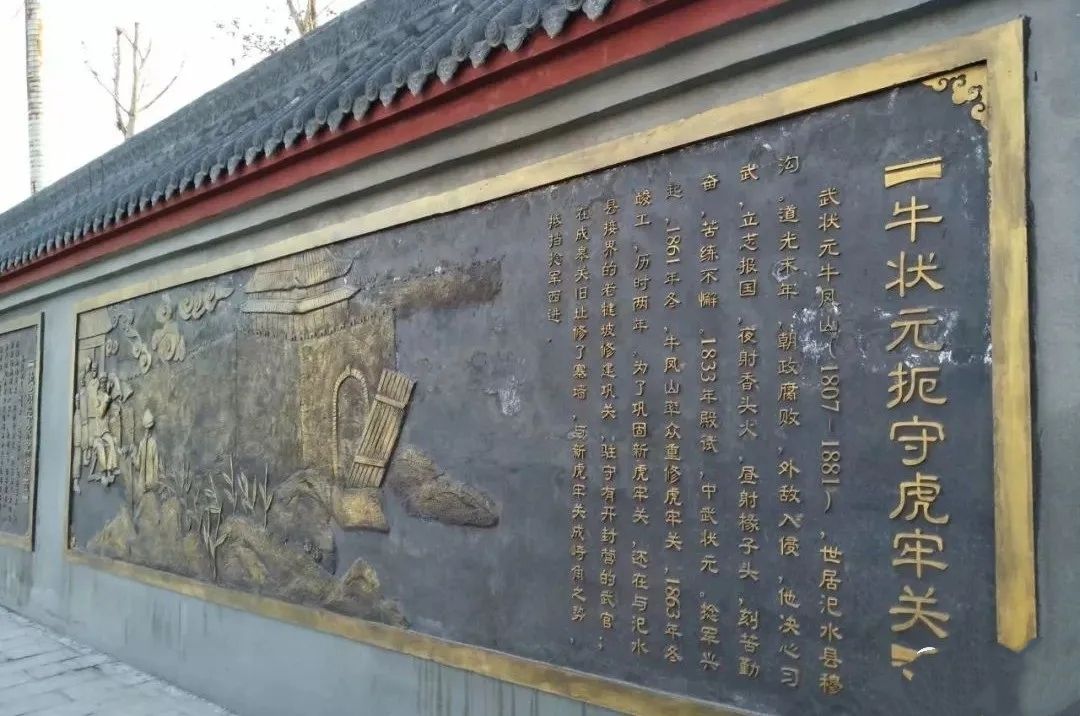 牛状元扼守虎牢关
武状元牛凤山(1807—1881),世居汜水县穆
沟。道光末年,朝政腐败,外敌入侵,他决心习
武,立志报国,夜射香头火,昼射椽子头,刻苦勤
奋,苦练不懈,1833年殿试,中武状元。捻军兴
起,1861年冬,牛凤山率众重修虎牢关,1863年冬
竣工,历时两年。为了巩固新虎牢关,还在与汜水
县接界的老犍坡修建巩关,驻守有开封营的武官;
在成皋关旧址修了寨墙,与新虎牢关成犄角之势,
抵挡捻军西进.